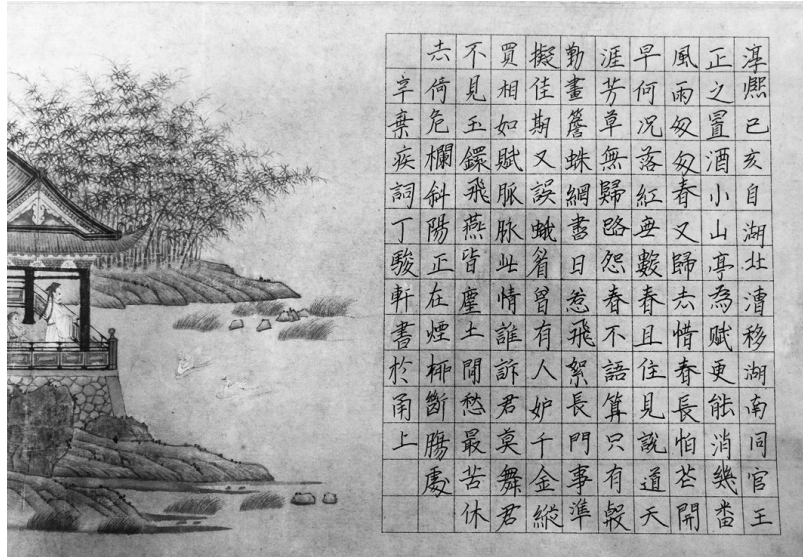 淳熙己亥自湖北漕移湖南同官王
正之置酒小山亭為賦更能消幾番
風雨匆匆春又歸去惜春長怕花開
早何况落紅無數春且住見說道天
涯芳草無歸路怨春不語算只有殷
勤畫簷蛛網盡日惹飛絮長門事準
擬佳期又誤蛾眉曾有人妒千金縱
買相如賦脈脉此情誰訴君莫舞君
不見玉鐶飛燕皆塵土閒愁最苦休
去倚危欄斜陽正在煙柳斷腸處
辛棄疾詞丁駿軒書於甬上